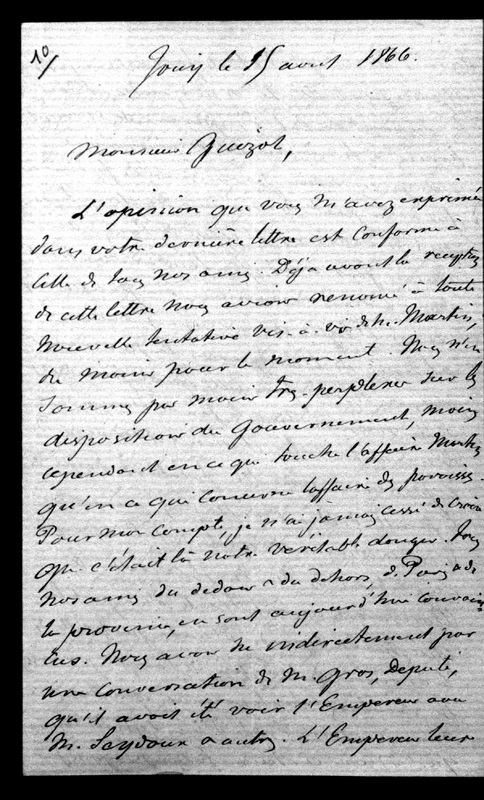 10/
Jouy le 15 aout 1866.
Monsieur Guizot,
L'opinion que vous m'avez exprimée
dans votre dernière lettre est conforme à
celle de tous nos amis. Déjà avant la reception
de cette lettre nous avions renoncé à toute
nouvelle tentative vis-à-vis de M. Martin,
du moins pour le moment. Nous n'en
sommes pas moins très-perplexes sur les
dispositions du Gouvernement, moins
cependant en ce qui touche l'affaire Martin
qu'en ce qui concerne l'affaire des paroisses.
Pour mon compte, je n'ai jamais cessé de croire
que c'était là notre véritable danger. Tous
nos amis du dedans & du dehors, de Paris & de
la province, en sont aujourd'hui convain-
cus. Nous avons su indirectement par
une conversation de M. Gros, Député,
qu'il avait été voir l'Empereur avec
M. Seydoux & autres. L'Empereur leur